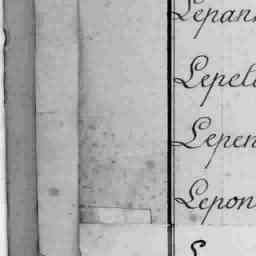 Lepan
Lepel
Lepen
Lepon